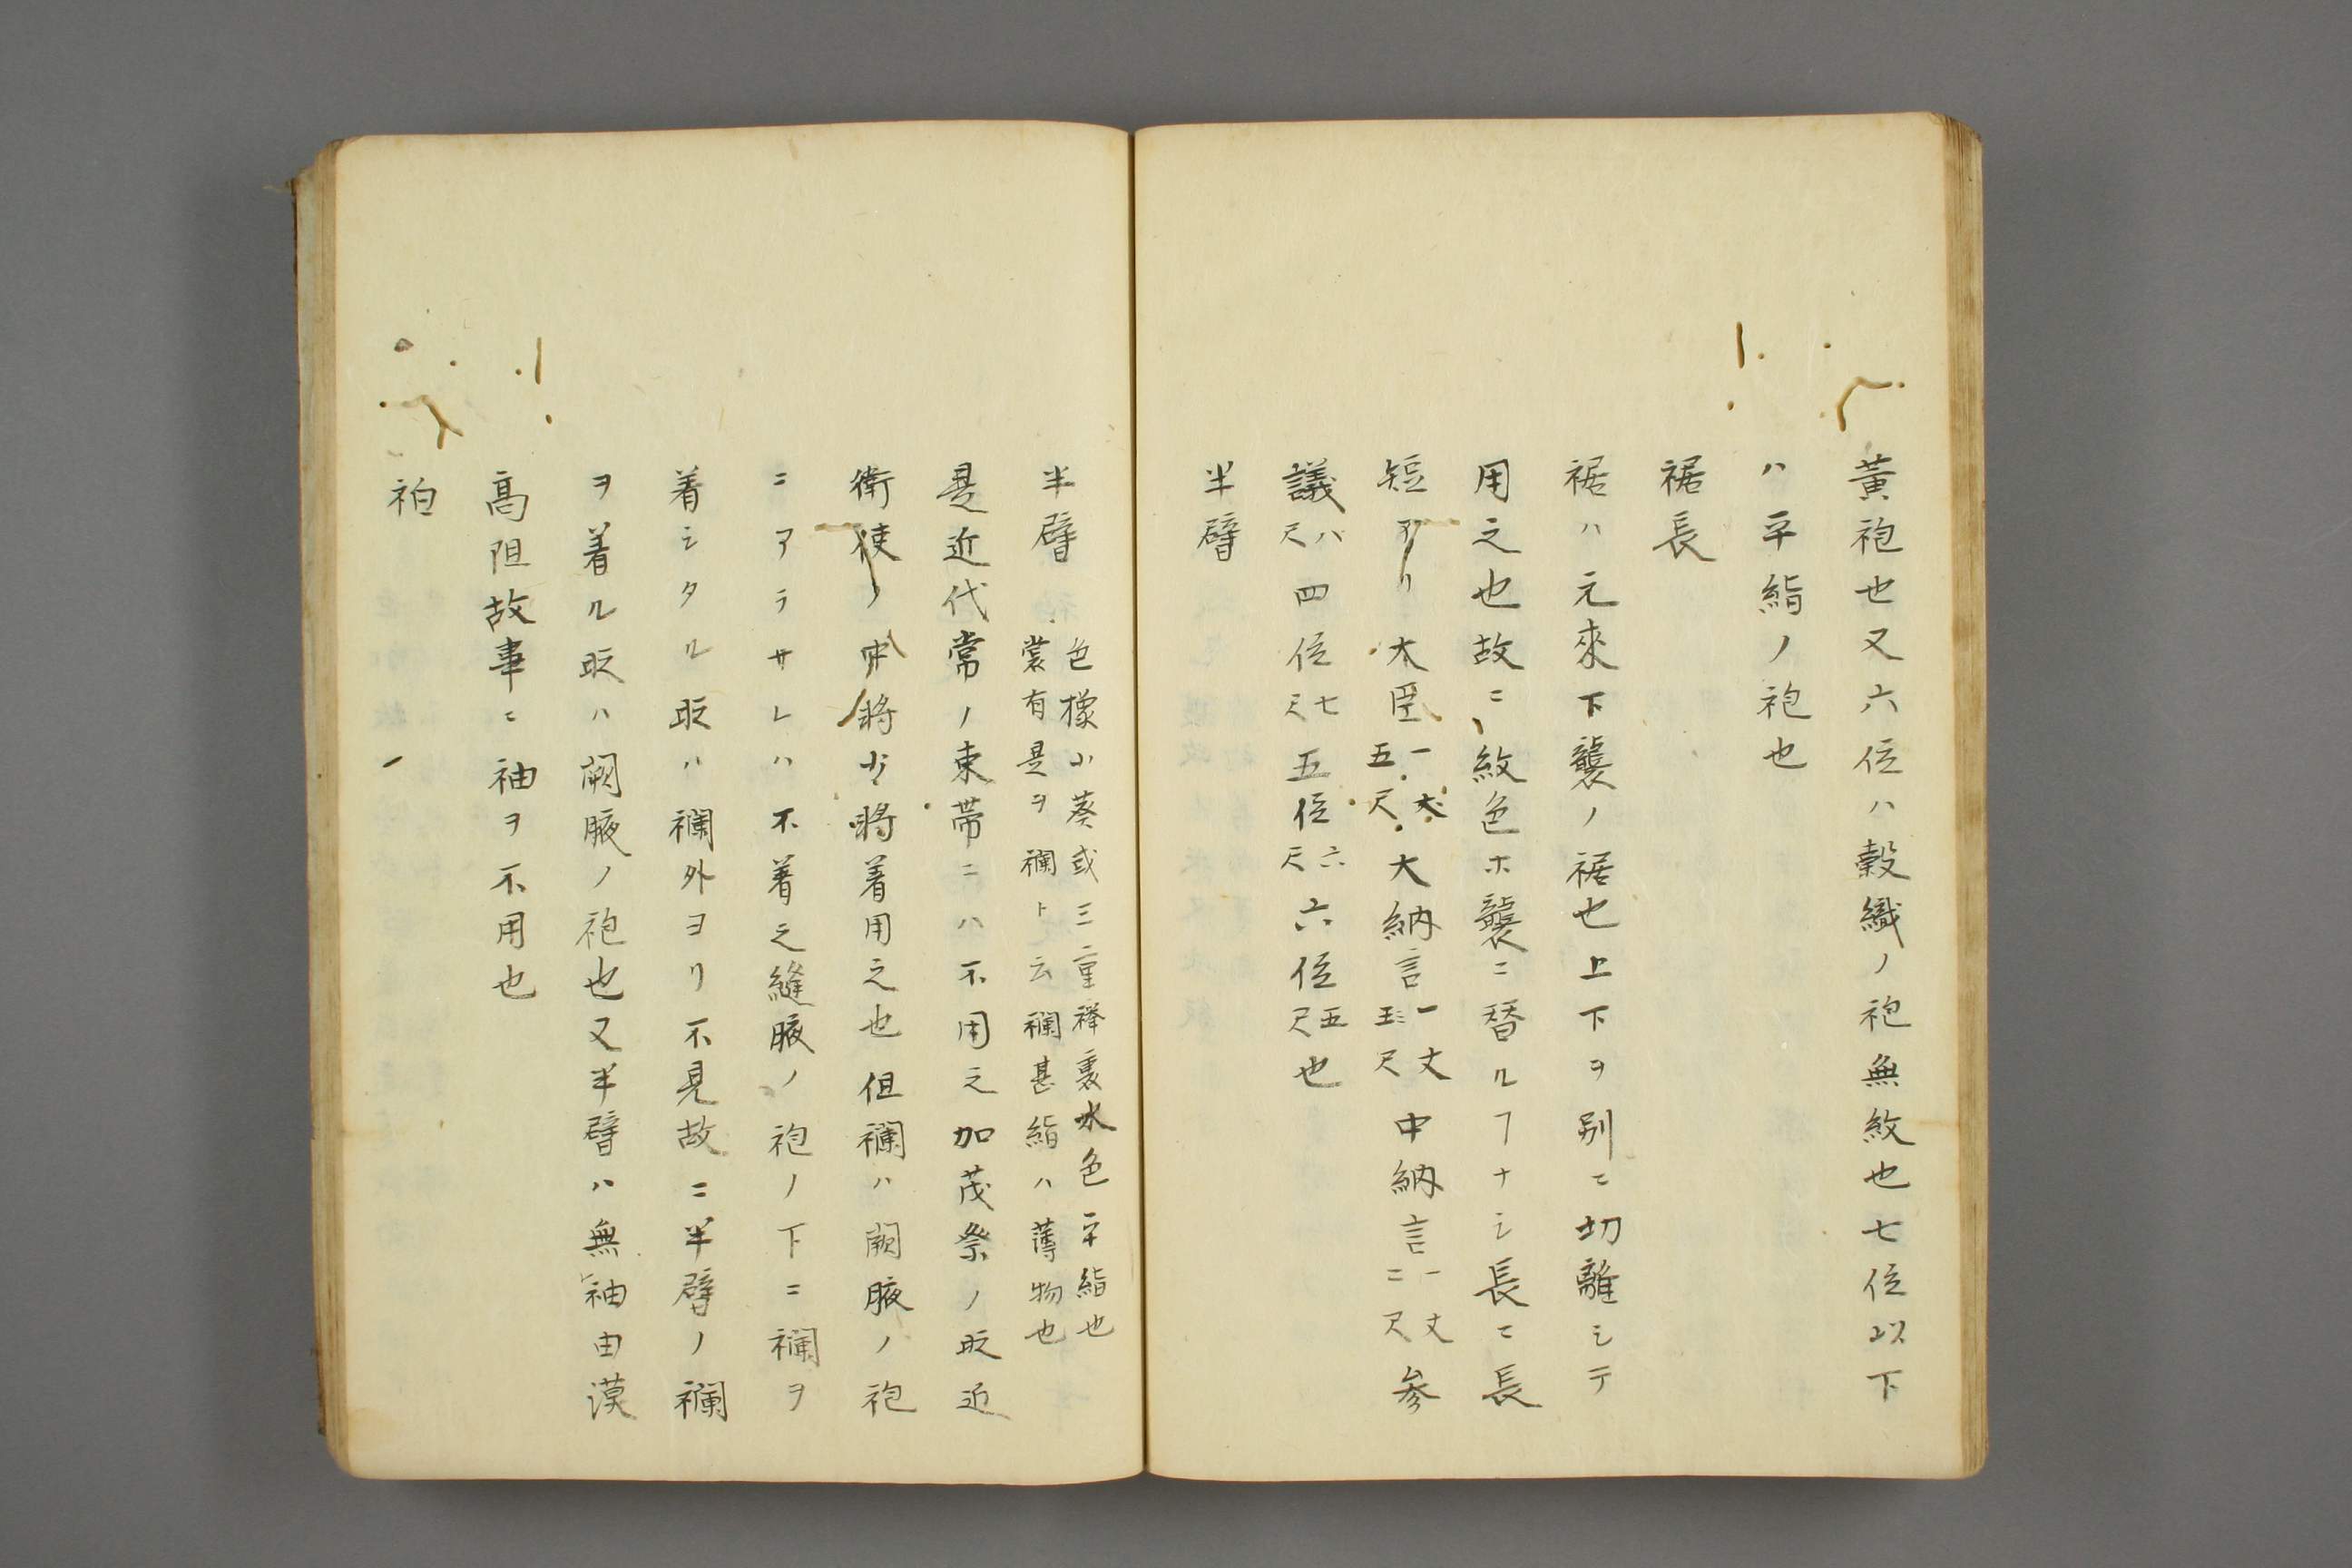 黄袍也又六位ハ縠織ノ袍無紋也七位以下
ハ平絹ノ袍也
裾長
裾ハ元來下襲ノ裾也上下ヲ別ニ切離シテ
用之也故ニ紋色ホ襲ニ替ルヿナシ長ニ長
短アリ大臣一丈五尺大納言一丈三尺中納言一丈二尺参
議八尺四位七尺五位六尺六位五尺也
半臂
半臂色橡小葵或三重襷裏水色平絹也
裳有是ヲ襴ト云襴甚絹ハ薄物也
是近代常ノ束帯ニハ不用之加茂祭ノ時近
衛使ノ中將少將着用之也但襴ハ闕腋ノ袍
ニアラサレハ不着之縫腋ノ袍ノ下ニ襴ヲ
着シタル時ハ襴外ヨリ不見故ニ半臂ノ襴
ヲ着ル時ハ闕腋ノ袍也又半臂ハ無袖由漢
高阻故事ニ袖ヲ不用也
袙